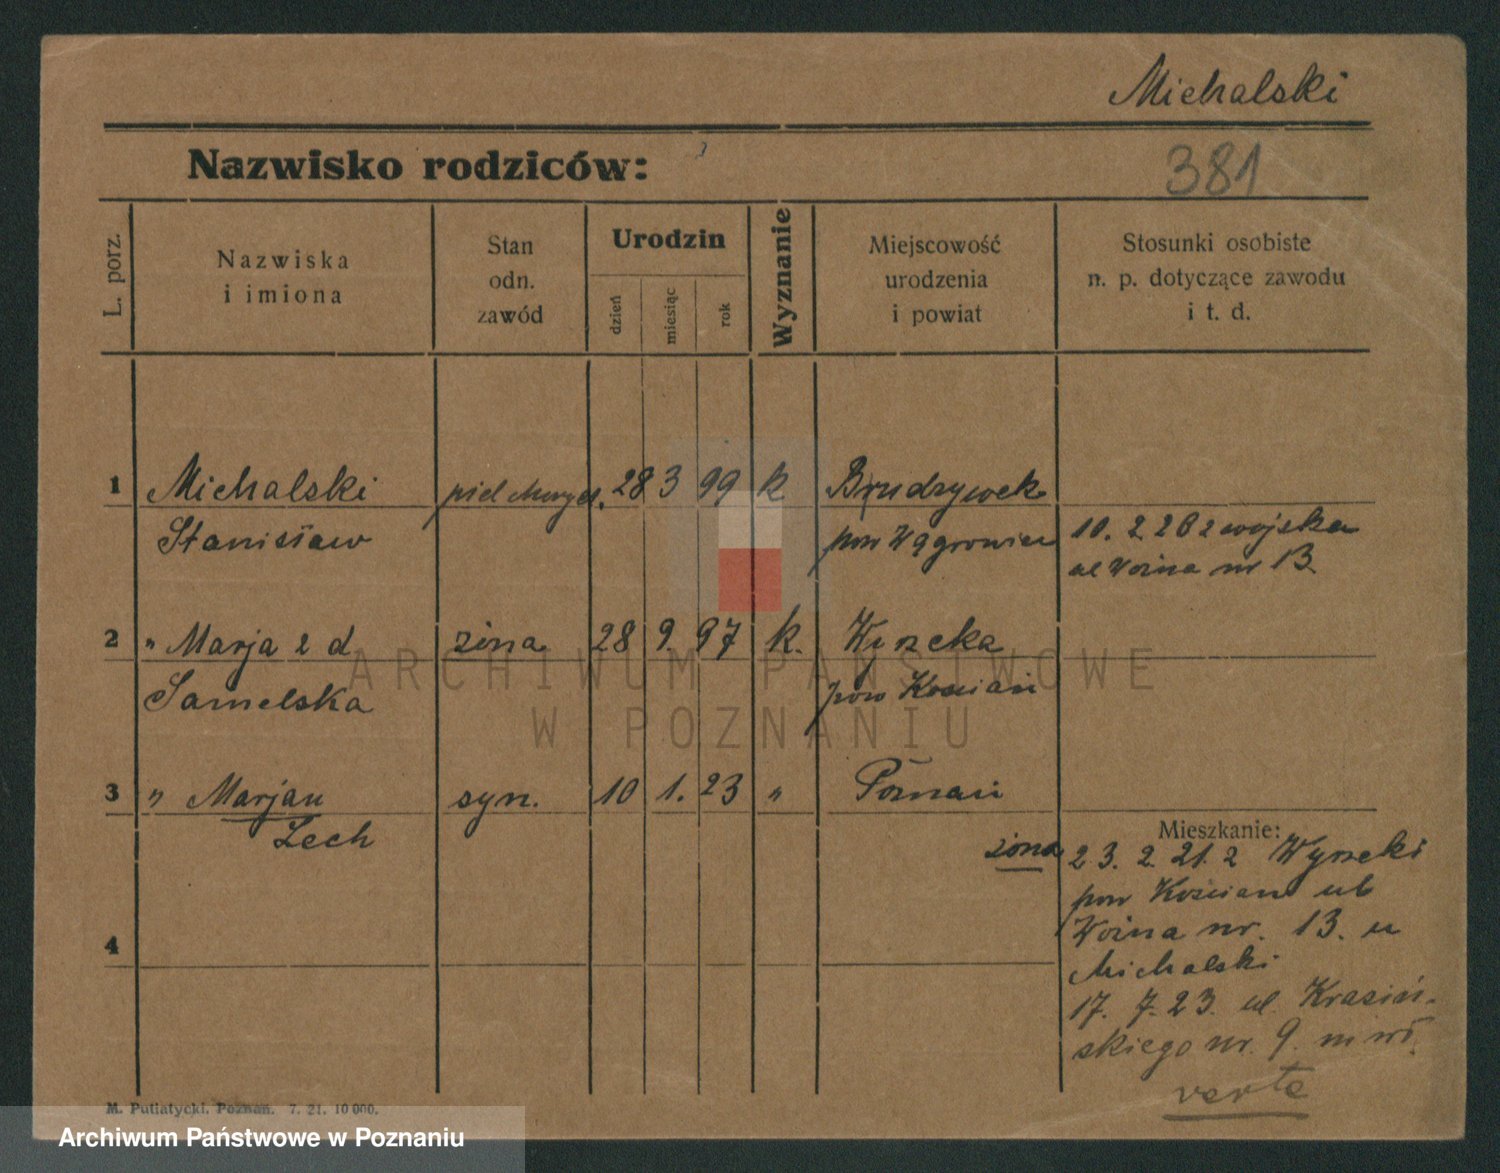 Michalski
Nazwisko rodziców:
381
L. porz.
Nazwiska
i imiona
Stan
odn.
zawód
Urodzin
dzień
miesiąc
rok
Wyznanie
Miejscowość
urodzenia
i powiat
Stosunki osobiste
n. p. dotyczące zawodu
i t. d.
1 Michalski 28 3 99 k Brudzywek
Stanisław pow Wągrowiec 10. 2. 20 z wojska
ul Woźna nr 13.
2 " Marja z d żona 28 9. 97 k. Wyrzeka
Samelska pow Kościan
3 " Marjan syn. 10 1. 23 " Poznań
Lech
Mieszkanie:
żona 23. 2. 21. z Wyrzeki
pow Kościan ul
Woźna nr. 13. u
Michalski
17. 7. 23. ul. Krasiń-
skiego nr. 9. m
verte
4
M. Putiatycki, Poznań. 7. 21. 10 000.
ARCHIWUM PAŃSTWOWE
W POZNANIU
Archiwum Państwowe w Poznaniu